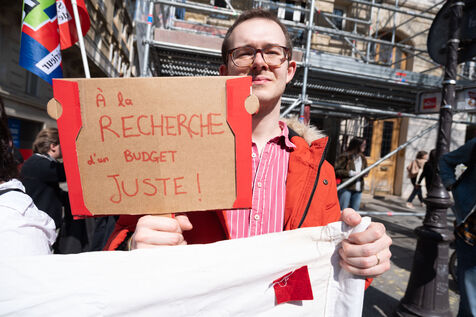 À la
RECHERCHE
d'un BUDGET
JUSTE !